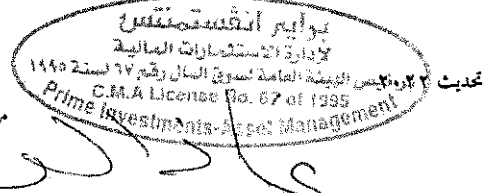 برايم انفستمنتس
لإدارة الاستثمارات المالية
الهيئة العامة لسوق المال رقم ٦٧ لسنة ١٩٩٥
C.M.A License No. 67 of 1995
Prime Investments-Asset Management
تحديث